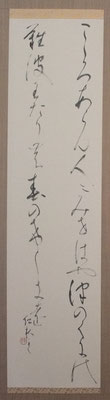 こゝろあらん人にみせはや津のくにの
難波わたりの春のけしきを